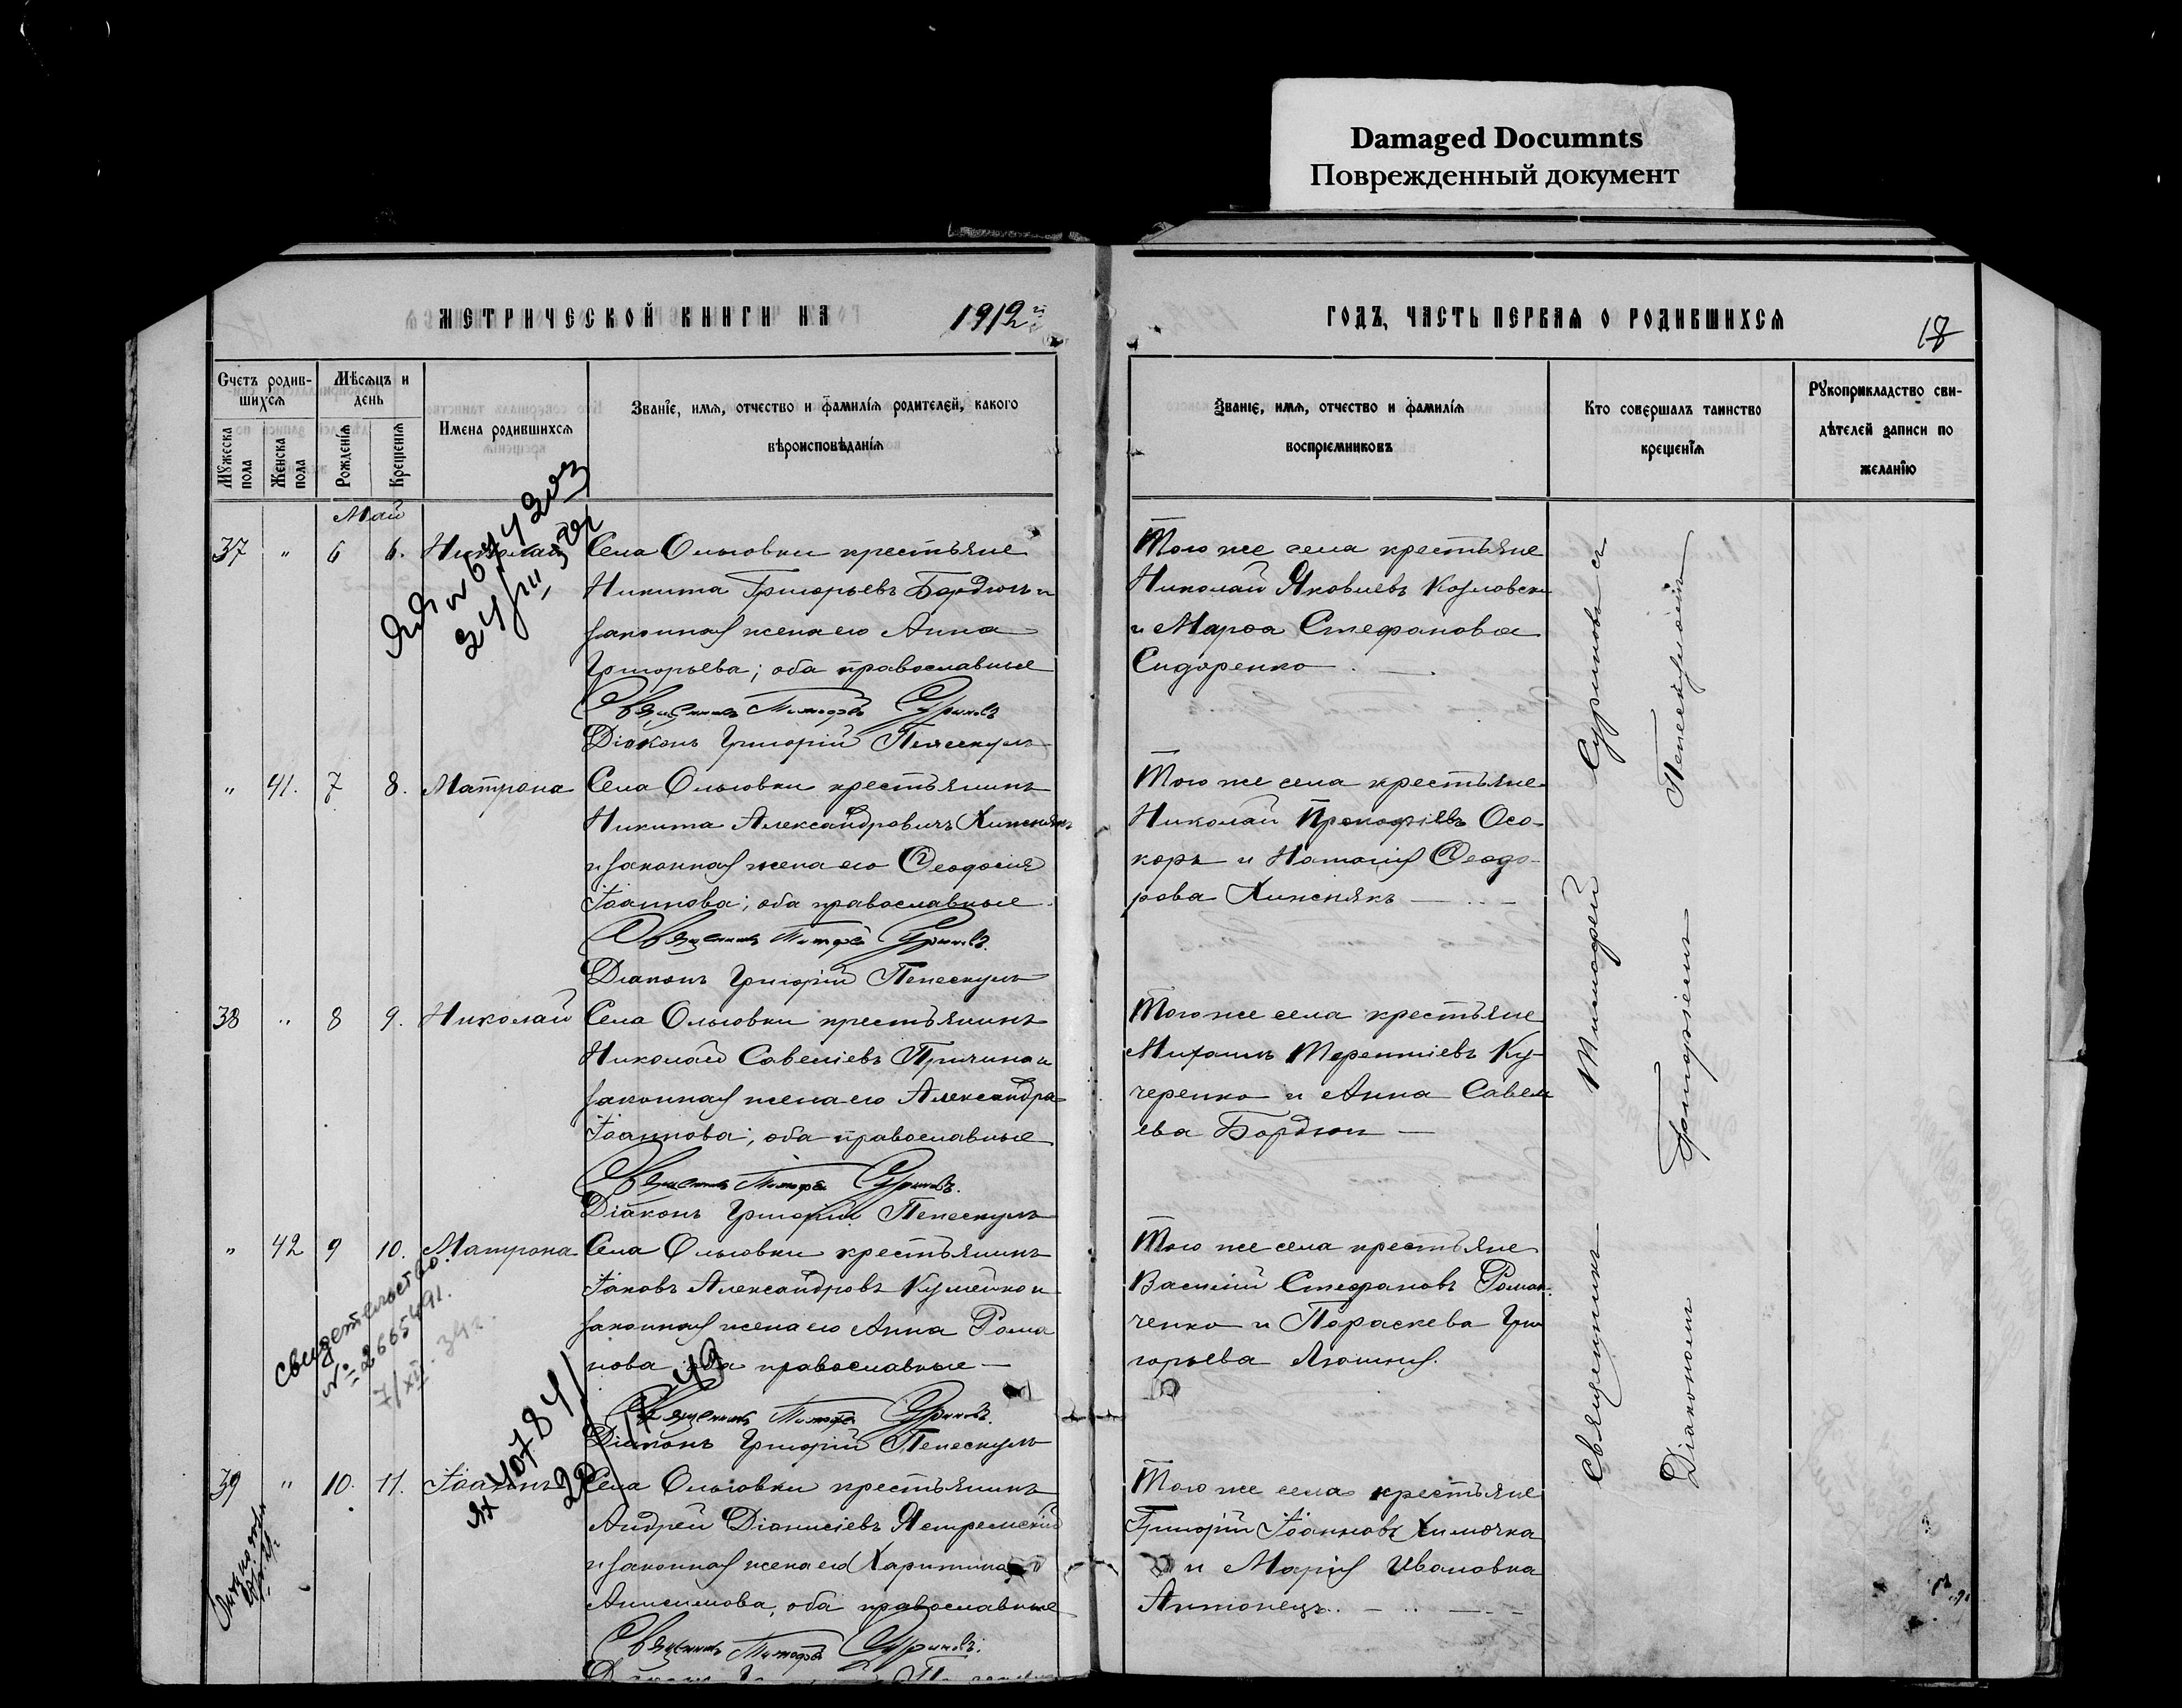 Damaged Documnts
Поврежденный документ
МЕТРИЧЕСКОЙ КНИГИ НА 1912
ГОДЪ, ЧАСТЬ ПЕРВАЯ О РОДИВШИХСЯ
18
Счетъ родив-
шихся
Мужеска
пола
Женска
пола
Мѣсяцъ и
день
Рожденія
Крещенія
Имена родившихся
Званіе, имя, отчество и фамилія родителей, какого
вѣроисповѣданія
Званіе, имя, отчество и фамилія
воспріемниковъ
Кто совершалъ таинство
крещенія
Рукоприкладство сви-
дѣтелей записи по
желанію
Май
37 " 6 6. Николай
Села Ольговки крестьяне
Никита Григорьевъ Бордюгъ и
законная жена его Анна
Григорьева; оба православные
Священникъ Тимофей Суриковъ
Діаконъ Григорій Пепескулъ
Того же села крестьяне
Николай Яковлевъ Козловскі
и Марѳа Стефанова
Сидоренко
" 41. 7 8. Матрона
Села Ольговки крестьянинъ
Никита Александровичъ Хижнякъ
и законная жена его Ѳеодосія
Іоаннова; оба православные
Священникъ Тимофей Суриковъ.
Діаконъ Григорій Пепескулъ
Того же села крестьяне
Николай Прокофіевъ Осо-
коръ и Наталія Ѳеодо-
рова Хижнякъ
38 " 8 9. Николай
Села Ольговки крестьянинъ
Николай Савеліевъ Причина и
законная жена его Александра
Іоаннова; оба православные
Священникъ Тимофей Суриковъ.
Діаконъ Григорій Пепескулъ
Того же села крестьяне
Михаилъ Терентіевъ Ку-
черенко и Анна Савель
ева Бордюг
" 42 9 10. Матрона
Села Ольговки крестьянинъ
Іаковъ Александровъ Кумейко и
законная жена его Анна Рома
нова оба православные
Священникъ Тимофей Суриковъ.
Діаконъ Григорій Пепескулъ
Того же села крестьяне
Василій Стефановъ Роман-
ченко и Параскева Гри
горьева
свидетельство.
№ 2665491.
39 " 10. 11. Іоаннъ
Села Ольговки крестьянинъ
Андрей Діонисіевъ Ястремскій
и законная жена его Харитина
Анисимова, оба православные
Священникъ Тимофей Суриковъ.
Того же села крестьяне
Григорій Іоанновъ Химочка
и Марія Ивановна
Антонецъ.
Священникъ Тимофей Суриковъ съ
Діакономъ Григоріемъ Пепескуломъ